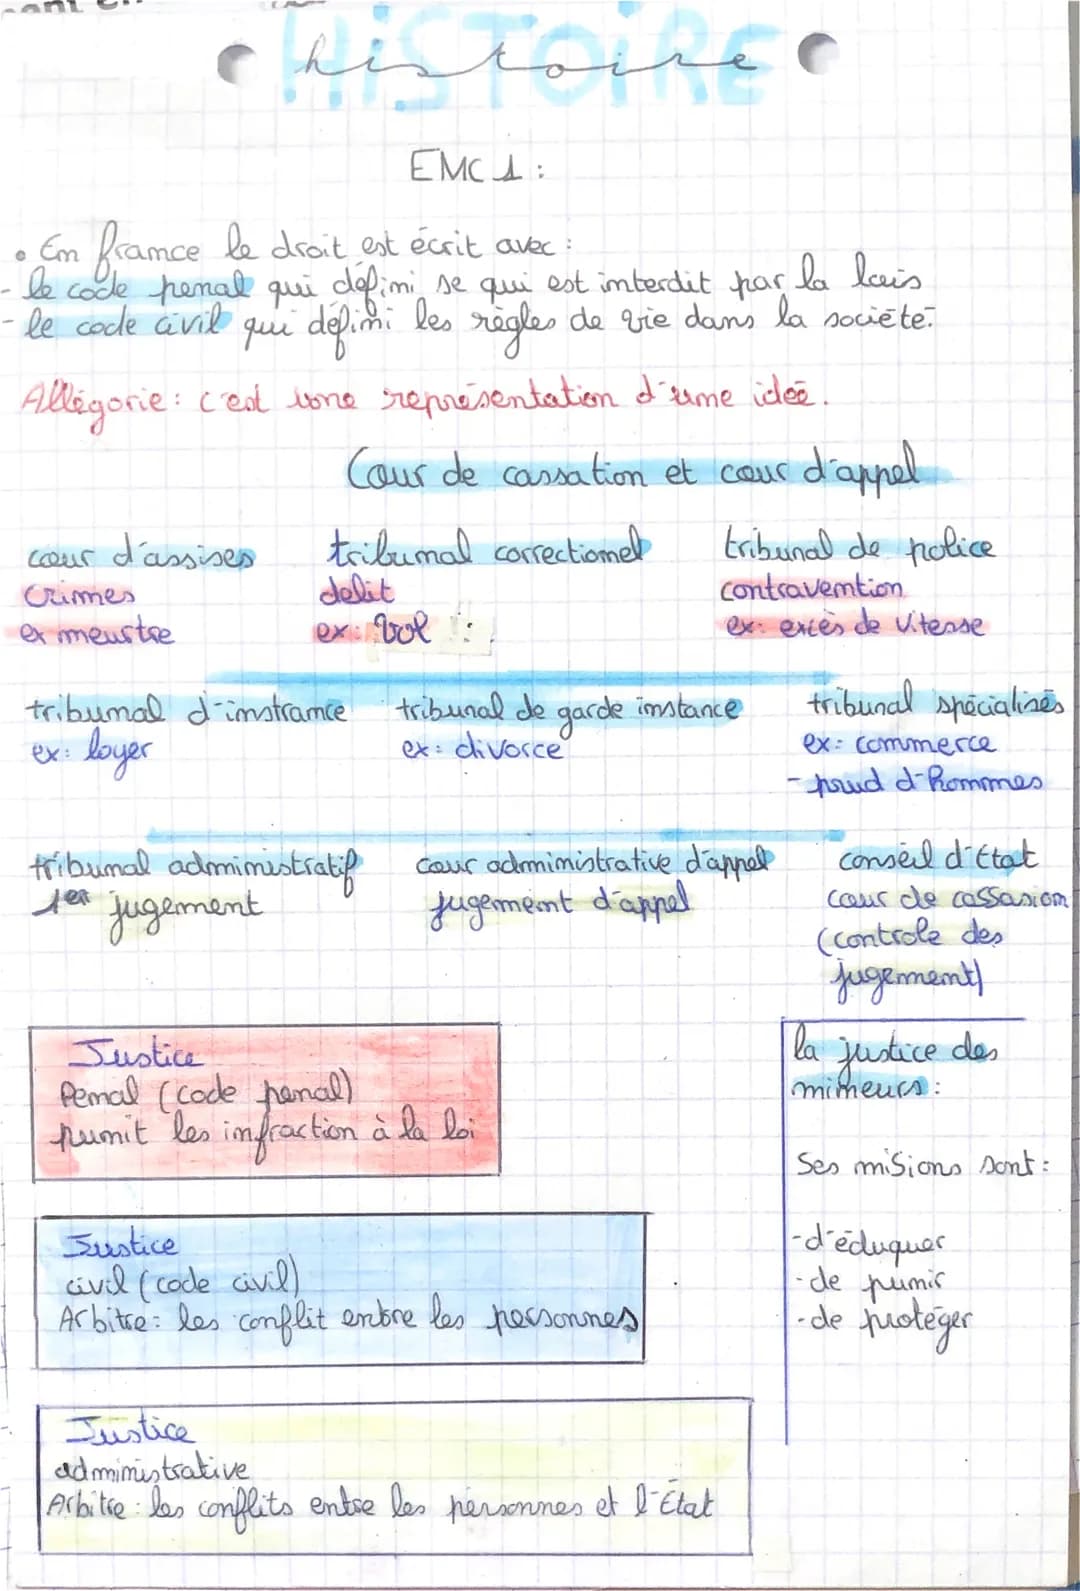 HiSTOiRE
histoire
EMC 1 :
• En france le droit est écrit avec :
- le code penal qui défini se qui est interdit par la lois
- le code civil qui défini les règles de vie dans la société.
Allégorie : c'est une représentation d'une ideé.
Cour de cassation et cour d'appel
cour d'assises
crimes
ex meurtre
tribunal correctionel
delit
ex : Vol
tribunal de police
contravention
ex: excès de vitesse
tribunal d'instrance
ex: loyer
tribunal de garde instance
ex: divorce
tribunal spécialisés
ex: commerce
- prud d'hommes
tribunal administratif
1er jugement
cour administrative d'appel
jugement d'appel
conseil d'Etat
cour de cassasion
(controle des
jugement)
Justice
Penal (code penal)
punit les infraction à la loi
Justice
civil (code civil)
Arbitre: les conflit entre les personnes
Justice
administrative
Arbitre : les conflits entre les personnes et l'État
la justice des
mineurs :
Ses misions sont :
- d'éduquer
- de punir
- de protéger